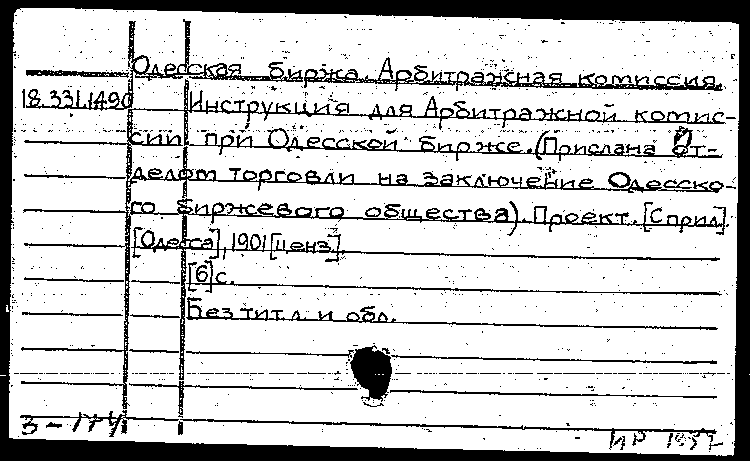 Одесская биржа. Арбитражная комиссия.
18.331.1490 Инструкция для Арбитражной комис-
сии при Одесской бирже. (Прислана От-
делом торговли на заключение Одесско-
го биржевого общества). Проект. [С прил].
[Одесса], 1901 [ценз].
[6] с.
Без тит. л. и обл.